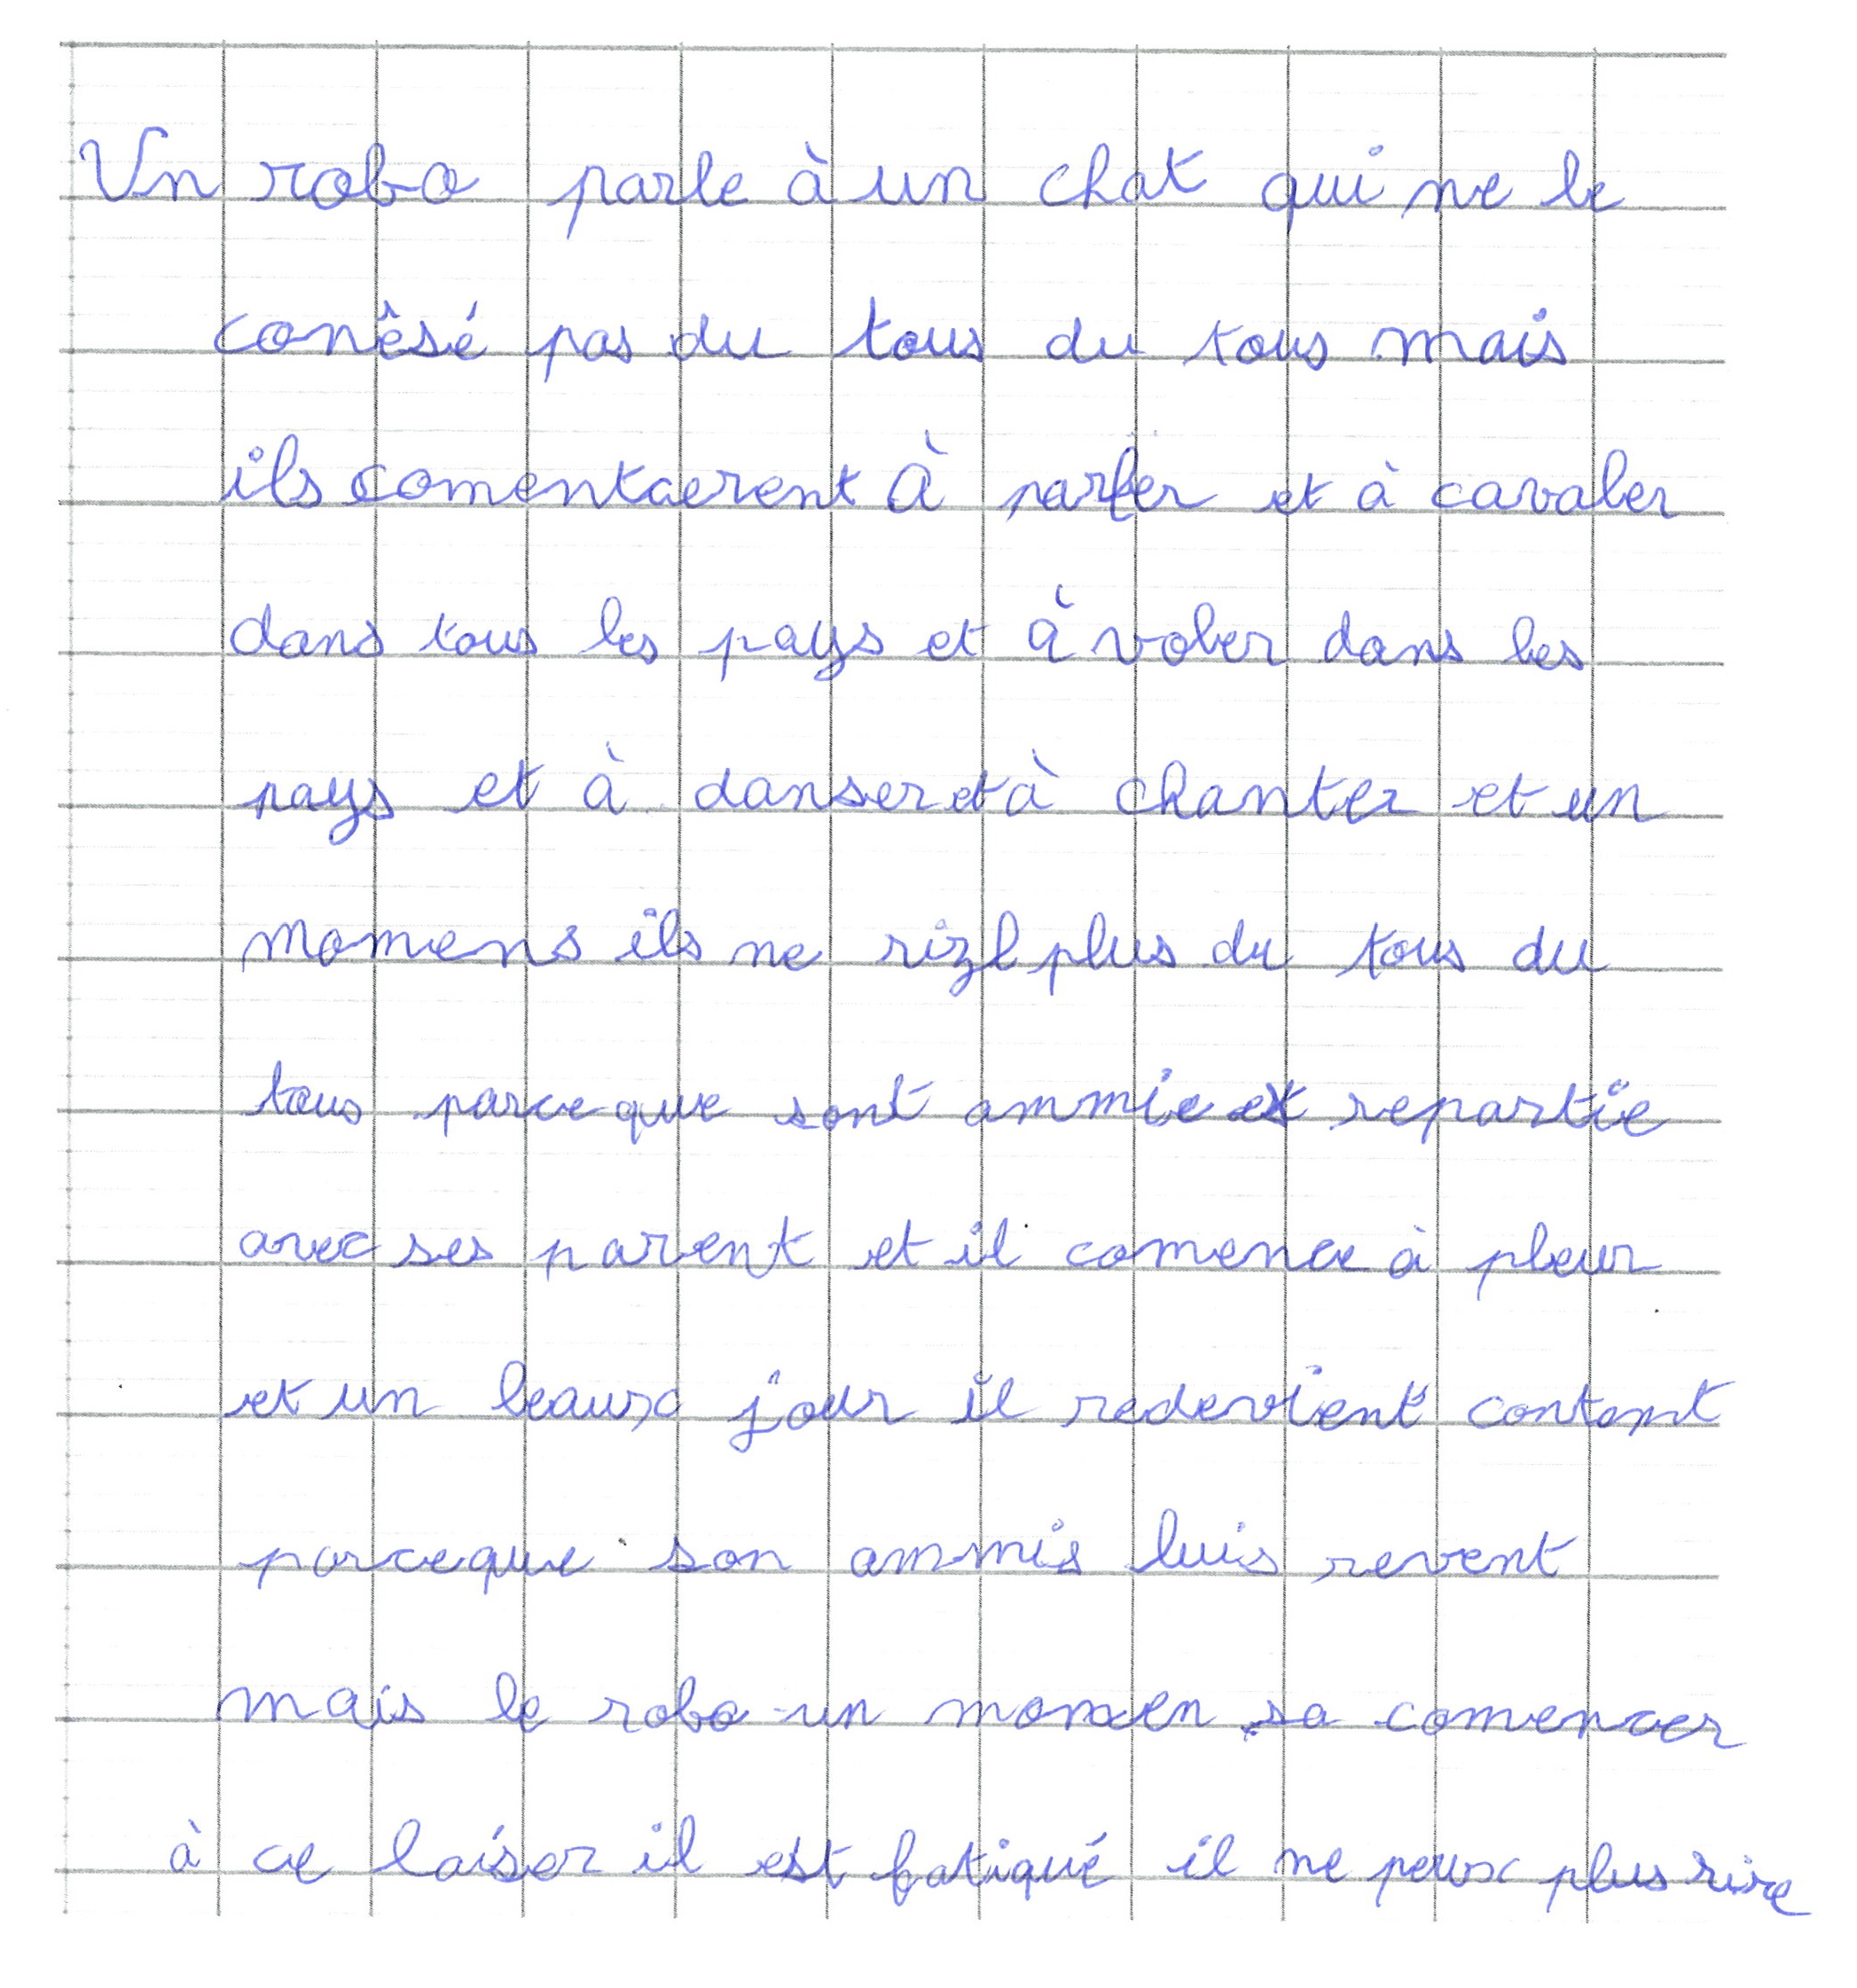 Un robo parle à un chat qui ne le
conèsé pas du tous du tous mais
ils comentaerent à parler et à cavaler
dans tous les pays et à voler dans les
pays et à danser et à chanter et un
momens ils ne rizl plus du tous du
tous parceque sont ammie et repartie
avec ses parent et il comence à pleur
et un beaux jour il redevient content
parceque son ammis luis revent
mais le robo un momen sa comencer
à ce laiser il est fatiqué il ne peux plus rire